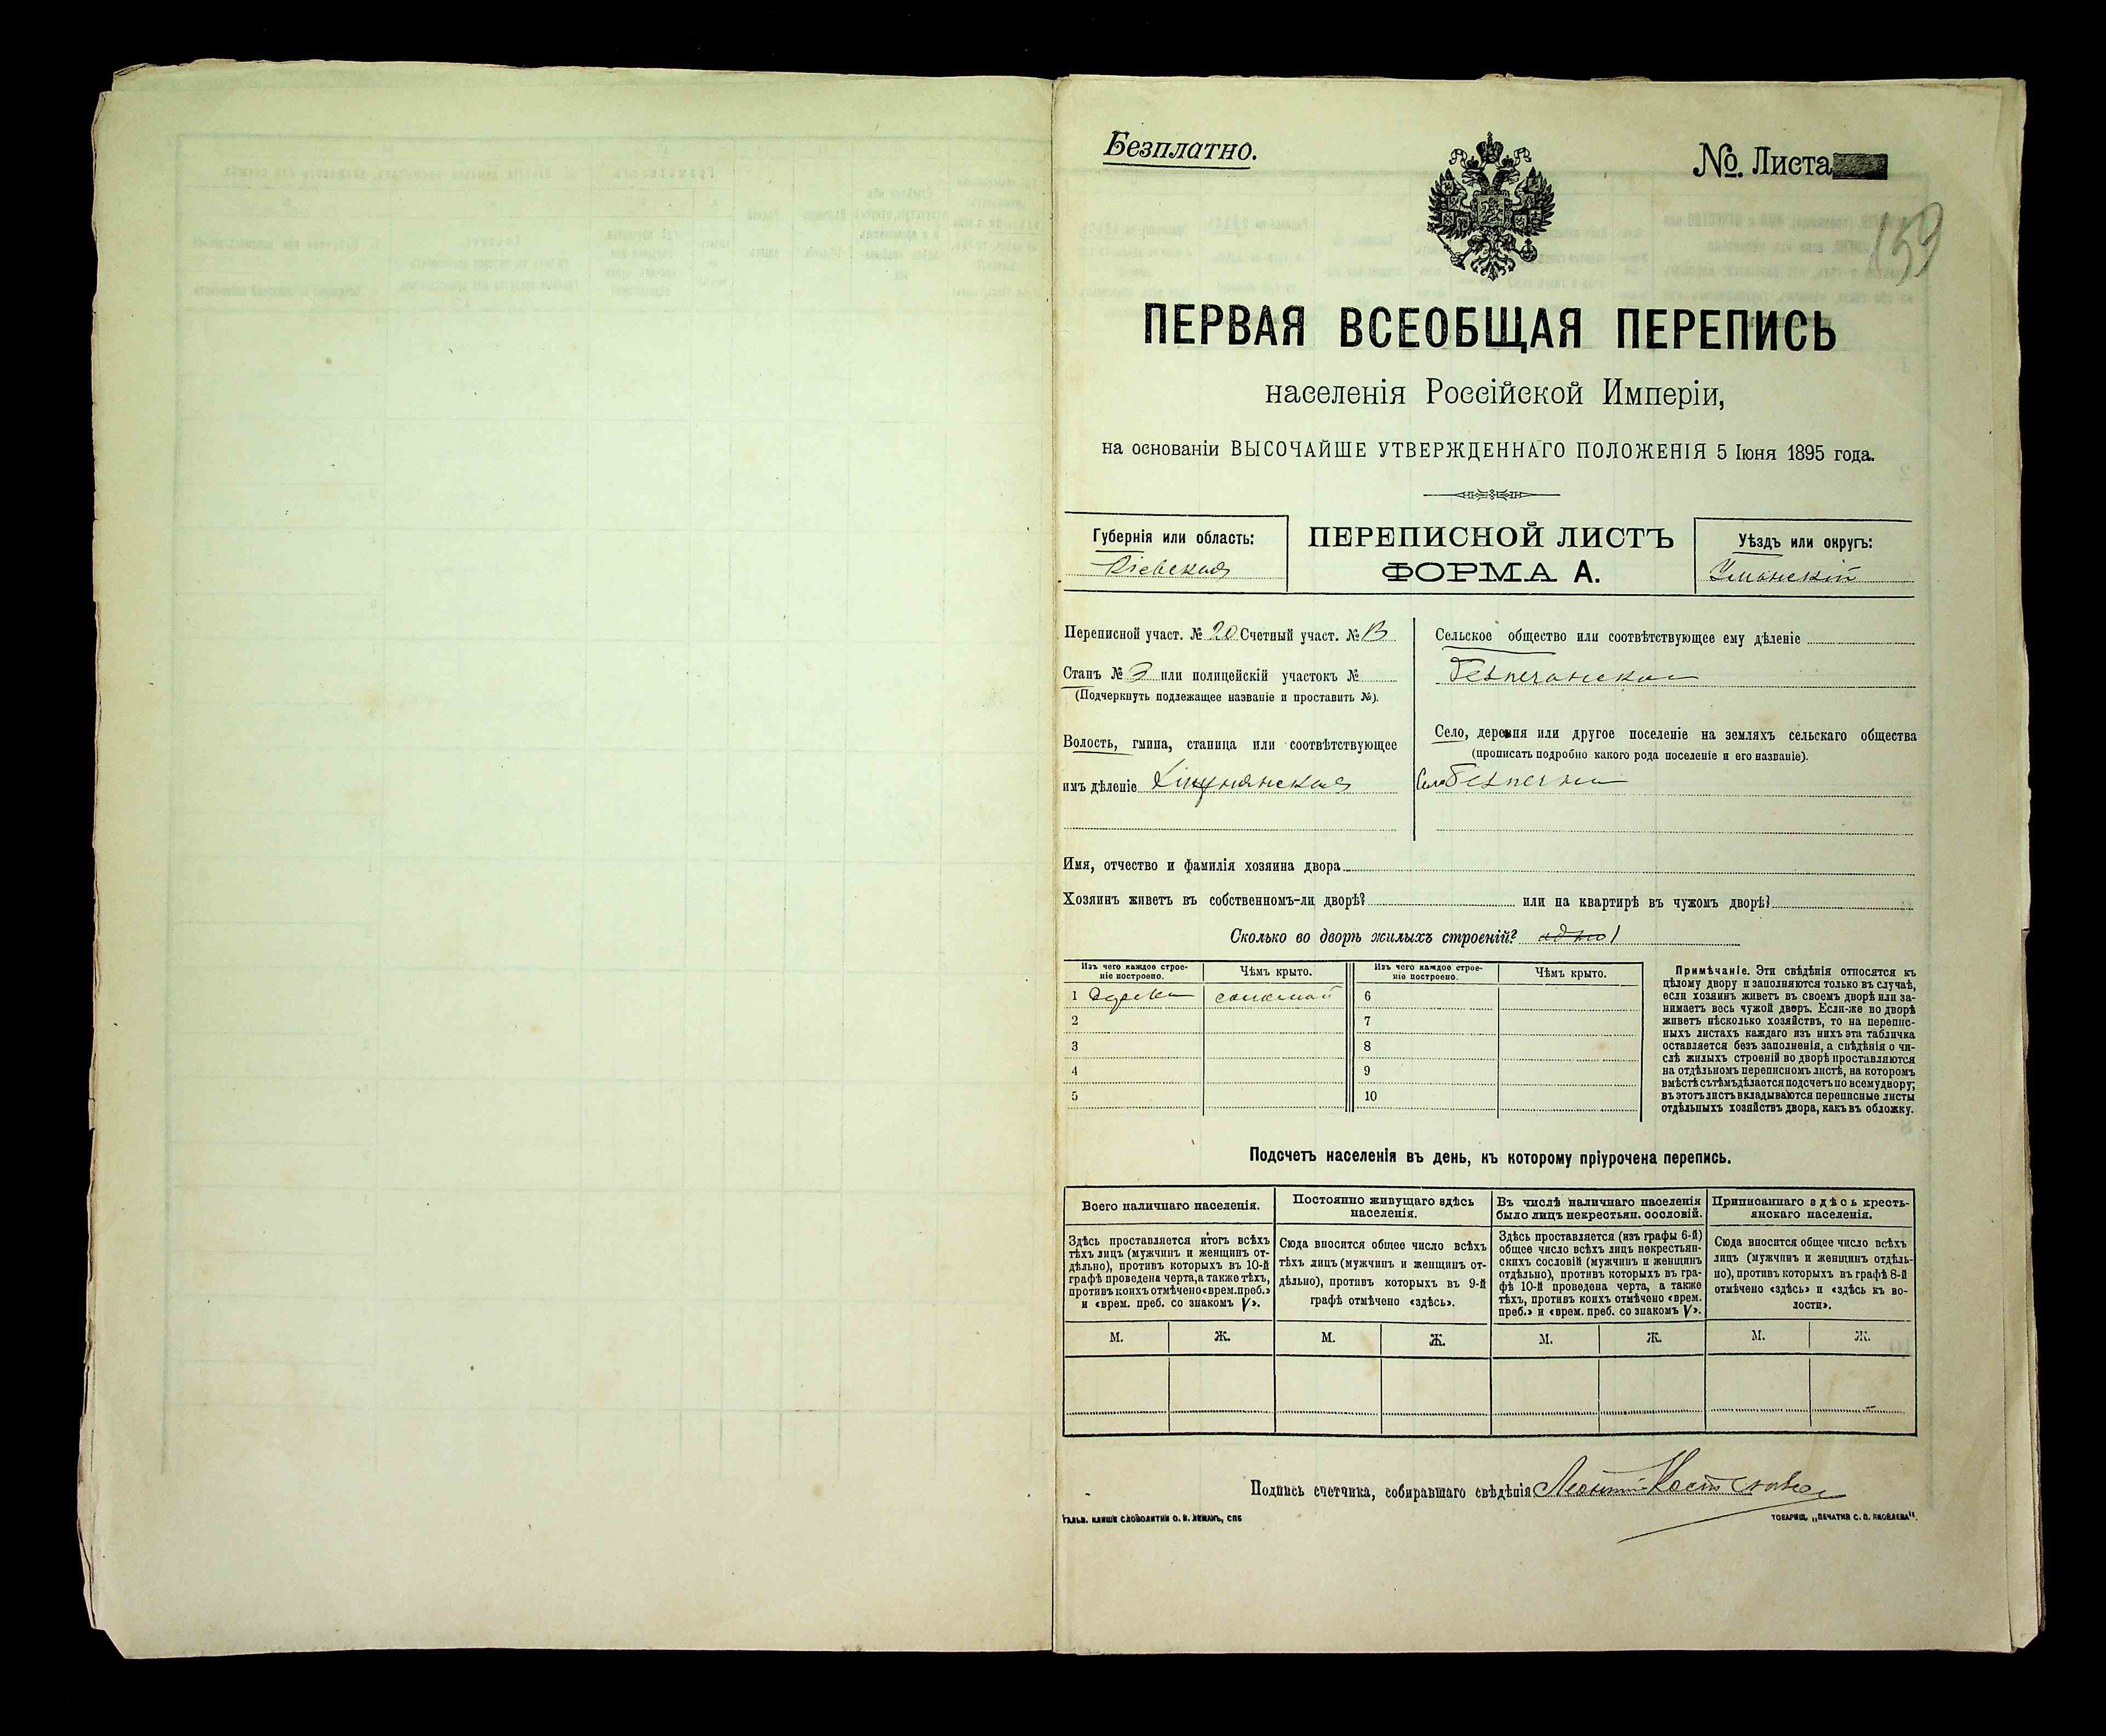 Безплатно.
№. Листа
159
ПЕРВАЯ ВСЕОБЩАЯ ПЕРЕПИСЬ
населенія Россійской Имперіи,
на основаніи ВЫСОЧАЙШЕ УТВЕРЖДЕННАГО ПОЛОЖЕНІЯ 5 Іюня 1895 года.
Губернія или область:
Кіевская
ПЕРЕПИСНОЙ ЛИСТЪ
ФОРМА А.
Уѣздъ или округъ:
Уманскій
Переписной участ. № 20 Счетный участ. №
Станъ № 3 или полицейскій участокъ №
(Подчеркнуть подлежащее названіе и проставить №).
Волость, гмина, станица или соотвѣтствующее
имъ дѣленіе
Сельское общество или соотвѣтствующее ему дѣленіе
Село, деревня или другое поселеніе на земляхъ сельскаго общества
(прописать подробно какого рода поселеніе и его названіе).
Село
Имя, отчество и фамилія хозяина двора
Хозяинъ живетъ въ собственномъ-ли дворѣ? или на квартирѣ въ чужомъ дворѣ?
Сколько во дворѣ жилыхъ строеній? одно 1
Изъ чего каждое строе-
ніе построено.
Чѣмъ крыто.
Изъ чего каждое строе-
ніе построено.
Чѣмъ крыто.
1 соломой 6
2 7
3 8
4 9
5 10
Примѣчаніе. Эти свѣдѣнія относятся къ
цѣлому двору и заполняются только въ случаѣ,
если хозяинъ живетъ въ своемъ дворѣ или за-
нимаетъ весь чужой дворъ. Если-же во дворѣ
живетъ нѣсколько хозяйствъ, то на перепис-
ныхъ листахъ каждаго изъ нихъ эта табличка
оставляется безъ заполненія, а свѣдѣнія о чи-
слѣ жилыхъ строеній во дворѣ проставляются
на отдѣльномъ переписномъ листѣ, на которомъ
вмѣстѣ съ тѣмъ дѣлается подсчетъ по всему двору;
въ этотъ листъ вкладываются переписные листы
отдѣльныхъ хозяйствъ двора, какъ въ обложку.
Подсчетъ населенія въ день, къ которому пріурочена перепись.
Всего наличнаго населенія.
Здѣсь проставляется итогъ всѣхъ
тѣхъ лицъ (мужчинъ и женщинъ от-
дѣльно), противъ которыхъ въ 10-й
графѣ проведена черта, а также тѣхъ,
противъ коихъ отмѣчено «врем. преб.»
и «врем. преб. со знакомъ V».
М. Ж.
Постоянно живущаго здѣсь
населенія.
Сюда вносится общее число всѣхъ
тѣхъ лицъ (мужчинъ и женщинъ от-
дѣльно), противъ которыхъ въ 9-й
графѣ отмѣчено «здѣсь».
М. Ж.
Въ числѣ наличнаго населенія
было лицъ некрестьян. сословій.
Здѣсь проставляется (изъ графы 6-й)
общее число всѣхъ лицъ некрестьян-
скихъ сословій (мужчинъ и женщинъ
отдѣльно), противъ которыхъ въ гра-
фѣ 10-й проведена черта, а также
тѣхъ, противъ коихъ отмѣчено «врем.
преб.» и «врем. преб. со знакомъ V».
М. Ж.
Приписаннаго здѣсь кресть-
янскаго населенія.
Сюда вносится общее число всѣхъ
лицъ (мужчинъ и женщинъ отдѣль-
но), противъ которыхъ въ графѣ 8-й
отмѣчено «здѣсь» и «здѣсь къ во-
лости».
М. Ж.
Подпись счетчика, собиравшаго свѣдѣнія
ГАЛЬВ. КЛИШЕ СЛОВОЛИТНИ О. И. ЛЕМАНЪ, СПБ
ТОВАРИЩ. „ПЕЧАТНЯ С. П. ЯКОВЛЕВА".